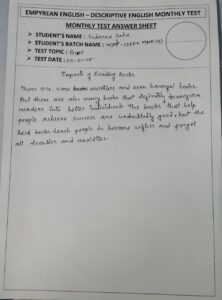 EMPYREAN ENGLISH – DESCRIPTIVE ENGLISH MONTHLY TEST
MONTHLY TEST ANSWER SHEET
➤ STUDENT'S NAME :
➤ STUDENT'S BATCH NAME :
➤ TEST TOPIC :
➤ TEST DATE :
Impacts of Reading Books
There are some worthless and even harmful books.
But there are also many books that definitely transform
readers into better individuals. The books that help
people achieve success are undoubtedly good, but the
best books teach people to become selfless and forget
all troubles and anxieties.